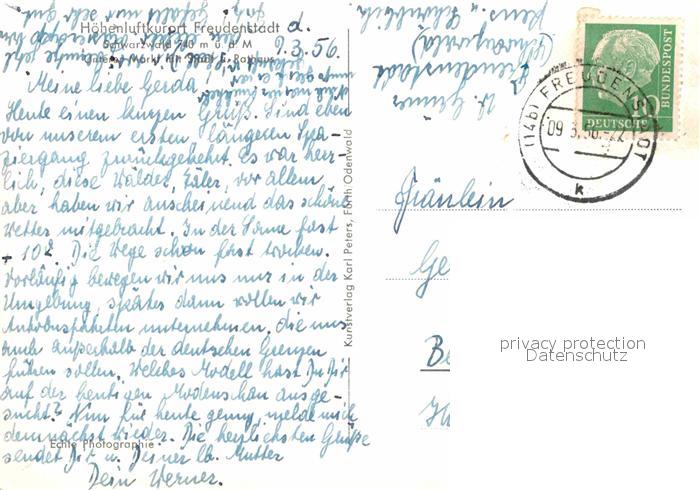 Höhenluftkurort Freudenstadt
Schwarzwald 740 m ü. d. M
Unterer Markt mit Stadt u. Rathaus
d.
9.3.56.
Meine liebe Gerda,
Heute einen kurzen Gruß. Sind eben
von unserem ersten längeren Spa-
ziergang zurückgekehrt. Es war herr-
lich, diese Wälder, Täler, vor allem
aber haben wir anscheinend das schöne
Wetter mitgebracht. In der Sonne fast
+ 10°. Die Wege schon fast trocken.
Vorläufig bewegen wir uns nur in der
Umgebung, später dann wollen wir
Autobusfahrten unternehmen, die uns
auch außerhalb der deutschen Grenzen
führen sollen. Welches Modell hast Du Dir
auf der heutigen Modenschau ausge-
sucht? Nun für heute genug, melde mich
demnächst wieder. Die herzlichsten Grüße
sendet Dir u. Deiner lb. Mutter
Dein Werner.
Echte Photographie
Kunstverlag Karl Peters, Fürth Odenwald
Freudenstadt
(Schwarzwald)
DEUTSCHE
BUNDESPOST
10
(14b) FREUDENSTADT
09.3.56.-22
k
Fräulein
Ge
Be
privacy protection
Datenschutz